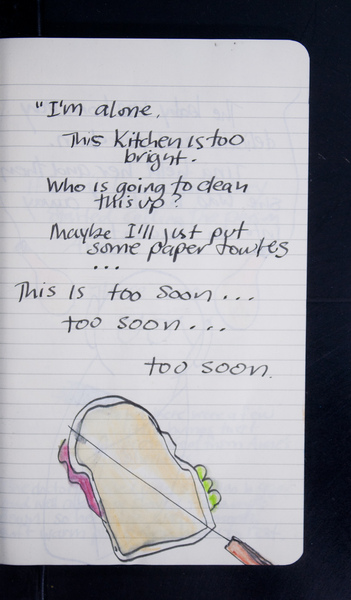 "I'm alone,
This Kitchen is too
bright.
Who is going to clean
this up?
Maybe I'll just put
some paper towles
...
This is too soon...
too soon...
too soon.